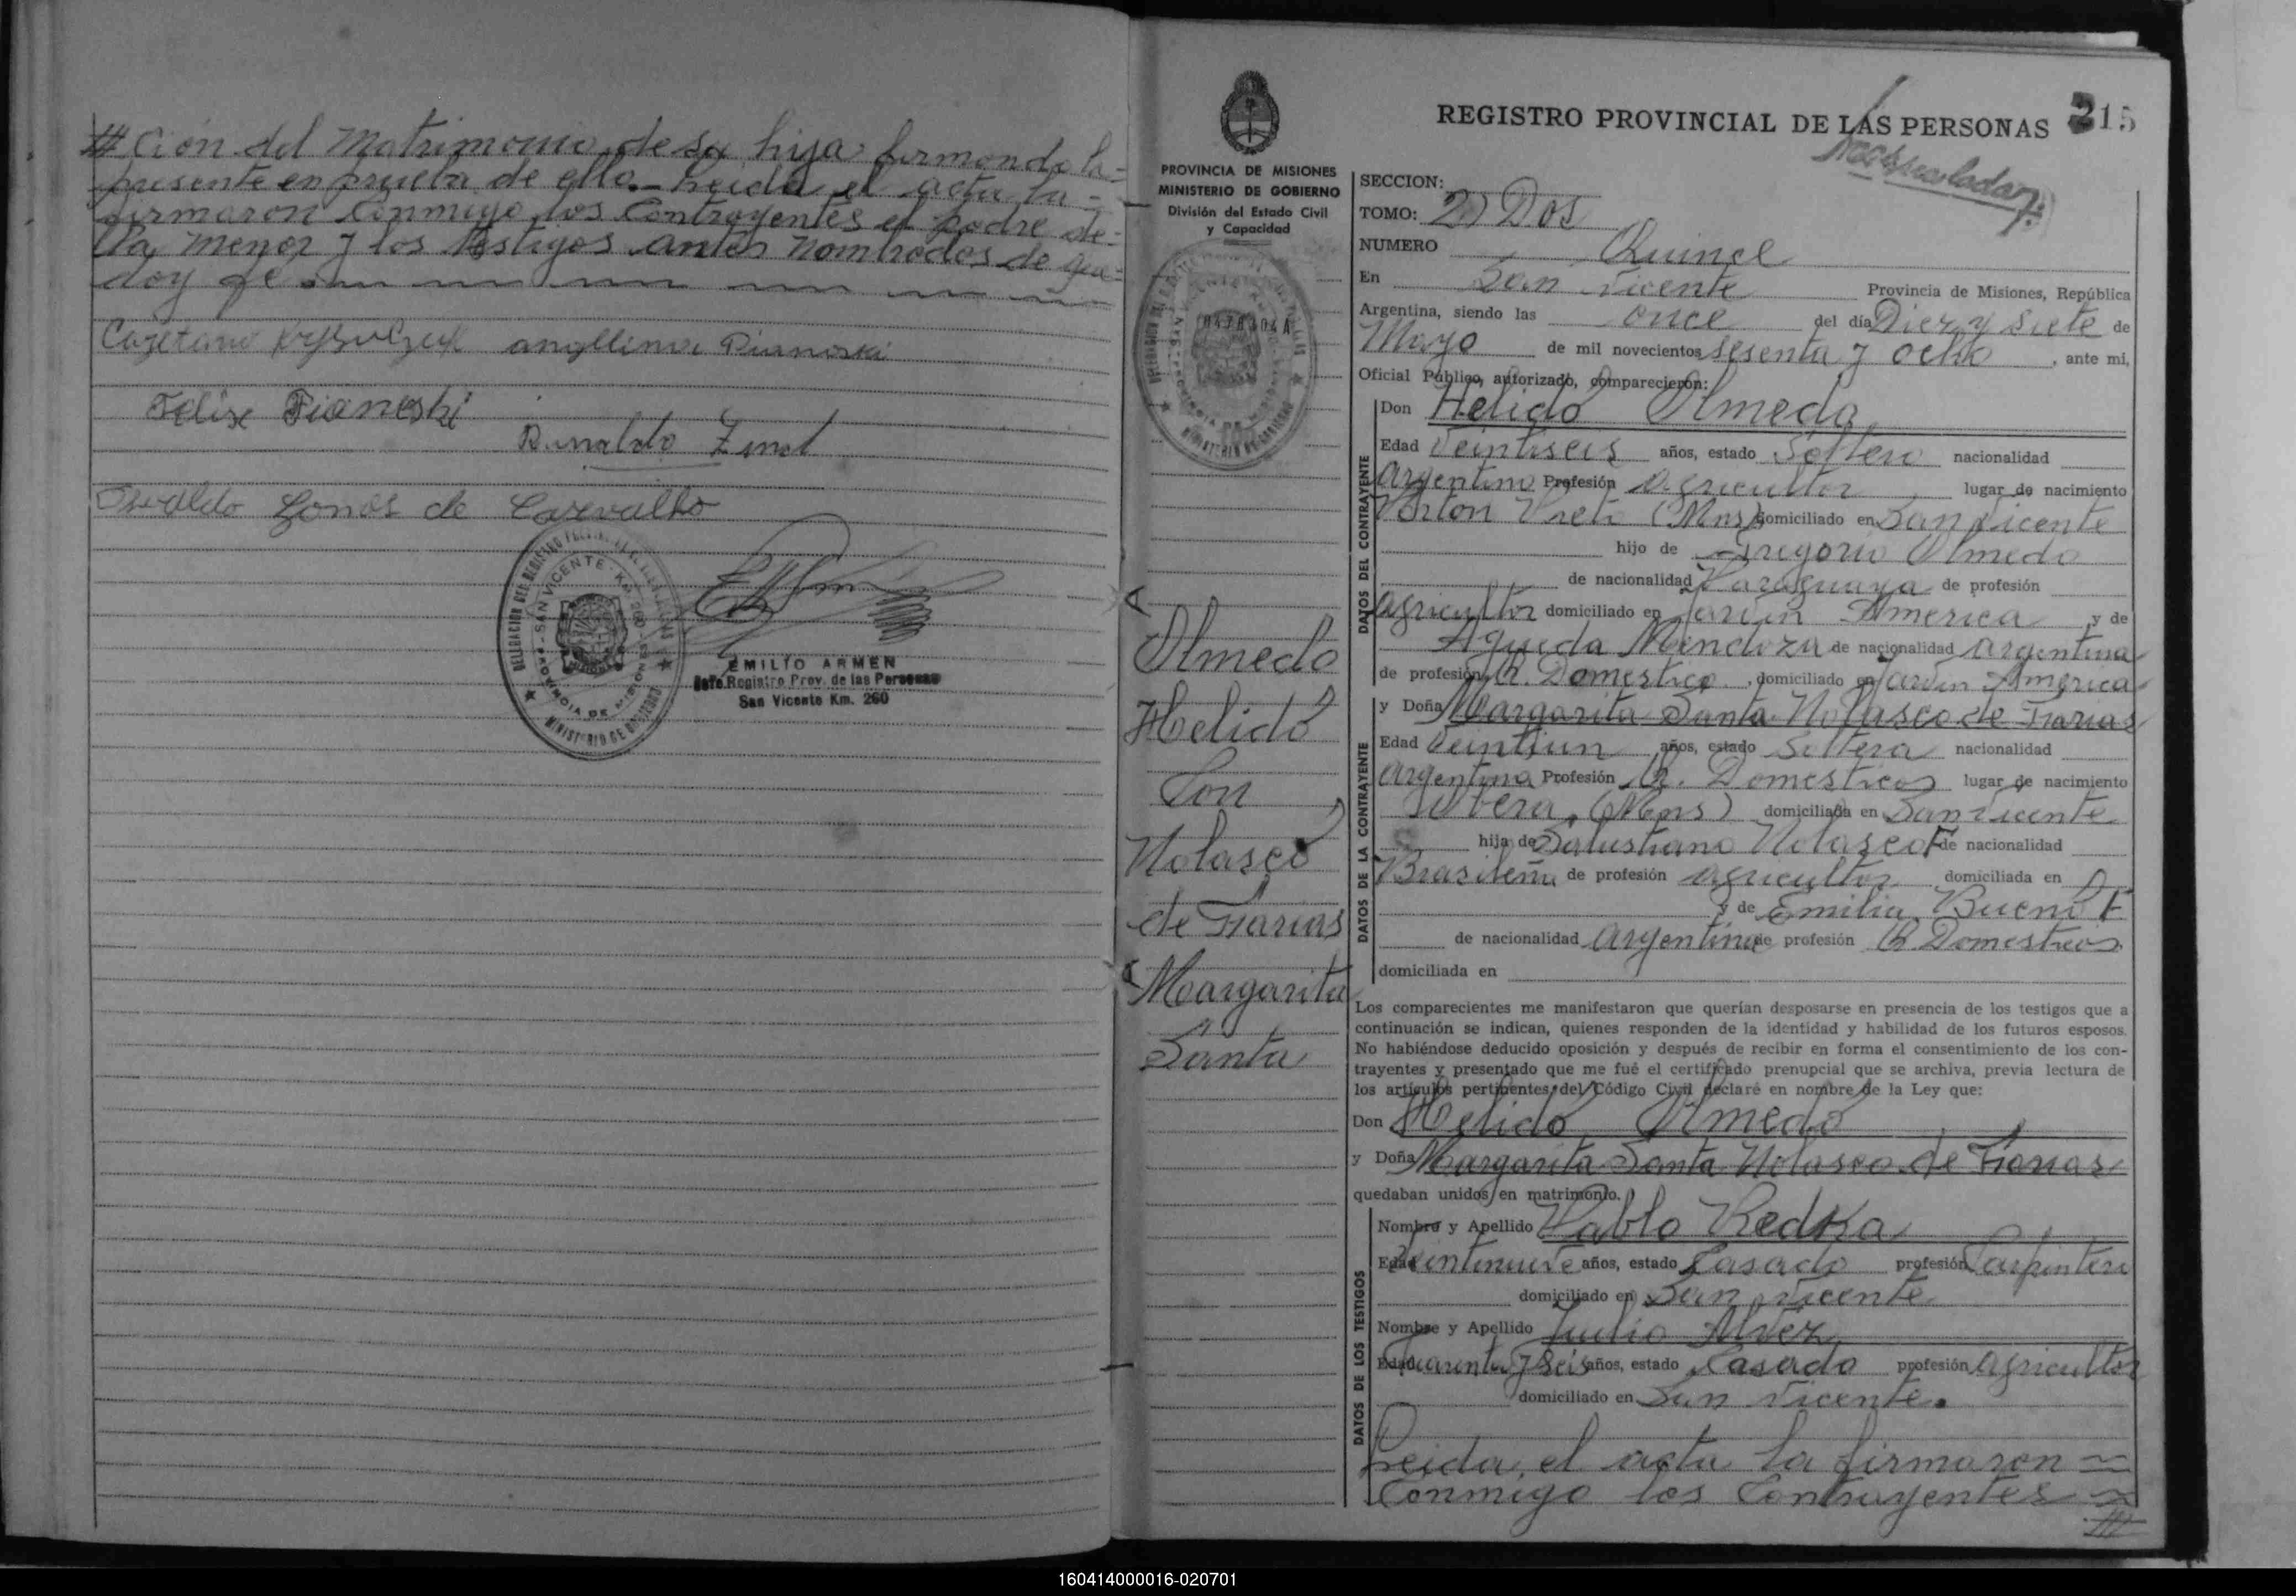 # Ción del Matrimonio de su hija firmando la=
presente en prueba de ello.- Leida el acta la=
firmaron conmigo los Contrayentes el padre de=
lla menor y los testigos antes nombrados de que=
doy fe
Felise Pianoski
Osvaldo Gomes de Carvalho
DELEGACION DEL REGISTRO PROVINCIAL DE LAS PERSONAS
SAN VICENTE - Km. 260
PROVINCIA DE MISIONES
MINISTERIO DE GOBIERNO
EMILIO ARMEN
Jefe Registro Prov. de las Personas
San Vicente Km. 260
PROVINCIA DE MISIONES
MINISTERIO DE GOBIERNO
División del Estado Civil
y Capacidad
Olmedo
Helido
Con
Nolasco
de Farias
Margarita
Santa
REGISTRO PROVINCIAL DE LAS PERSONAS 215
SECCION:
TOMO: 2) Dos
NUMERO Quince
En San Vicente Provincia de Misiones, República
Argentina, siendo las once del día Diez y Siete de
Mayo de mil novecientos Sesenta y Ocho, ante mi,
Oficial Público, autorizado, comparecieron:
DATOS DEL CONTRAYENTE
Don Helido Olmedo
Edad Veintiseis años, estado Soltero nacionalidad
Argentino Profesión Agricultor lugar de nacimiento
(Mns) domiciliado en San Vicente
hijo de Gregorio Olmedo
de nacionalidad Paraguaya de profesión
Agricultor domiciliado en Jardin America y de
Agueda Mendoza de nacionalidad Argentina
de profesión Q. Domestico, domiciliado en Jardin America
DATOS DE LA CONTRAYENTE
y Doña Margarita Santa Nolasco de Farias
Edad Veintiun años, estado Soltera nacionalidad
Argentina Profesión Q. Domesticos lugar de nacimiento
(Mns) domiciliada en San Vicente
hija de Salustiano Nolasco F de nacionalidad
Brasileña de profesión agricultor domiciliada en
y de Emilia Bueno F
de nacionalidad Argentina de profesión Q Domesticos
domiciliada en
Los comparecientes me manifestaron que querían desposarse en presencia de los testigos que a
continuación se indican, quienes responden de la identidad y habilidad de los futuros esposos.
No habiéndose deducido oposición y después de recibir en forma el consentimiento de los con-
trayentes y presentado que me fué el certificado prenupcial que se archiva, previa lectura de
los artículos pertinentes del Código Civil declaré en nombre de la Ley que:
Don Helido Olmedo
y Doña Margarita Santa Nolasco de Farias
quedaban unidos en matrimonio.
DATOS DE LOS TESTIGOS
Nombre y Apellido Pablo Redka
Edad Veintinueve años, estado Casado profesión Carpintero
domiciliado en San Vicente
Nombre y Apellido Julio Alvez
Edad Cuarenta y Seis años, estado Casado profesión agricultor
domiciliado en San Vicente.
Leida el acta la firmaron =
Conmigo los Contrayentes =
#
160414000016-020701